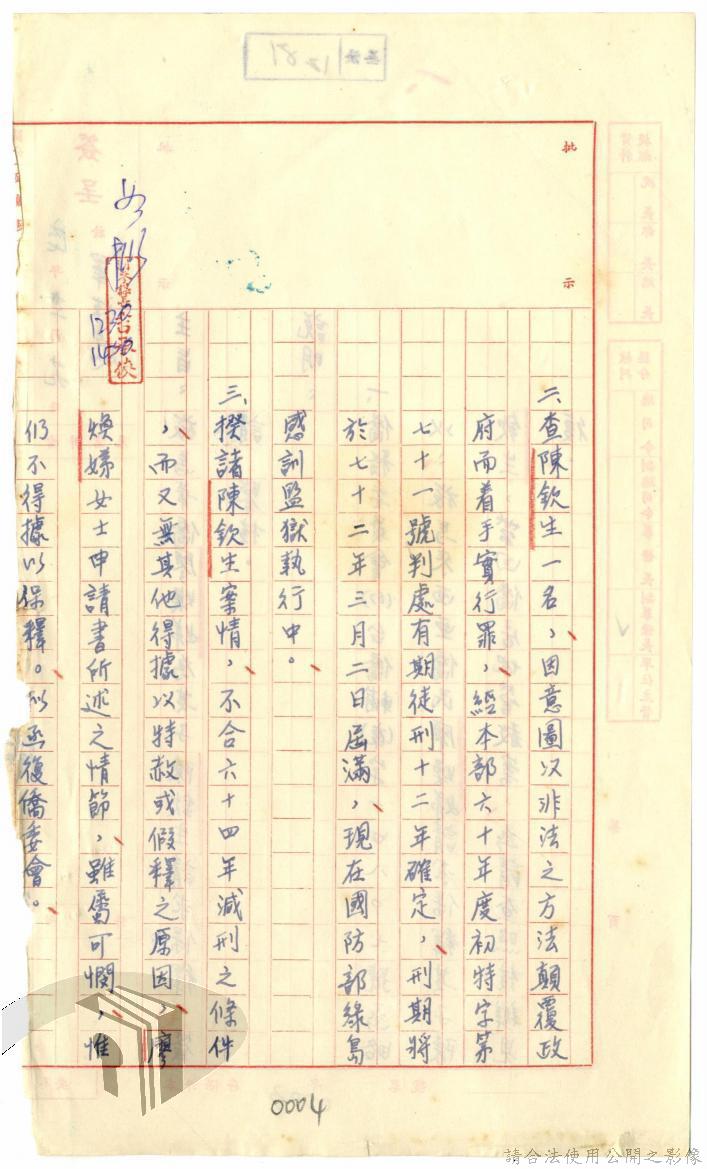 批
示
二、查陳欽生一名，因意圖以非法之方法顛覆政
府而着手實行罪，經本部六十年度初特字第
七十一號判處有期徒刑十二年確定，刑期將
於七十二年三月二日屆滿，現在國防部綠島
感訓監獄執行中。
三、揆諸陳欽生案情，不合六十四年減刑之條件
，而又無其他得據以特赦或假釋之原因，廖
煥娣女士申請書所述之情節，雖屬可憫，惟
仍不得據以保釋。擬函復僑委會。
如擬
1220
1450
0004
請合法使用公開之影像